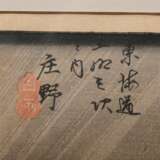 東海道
五拾三次
之内
庄野